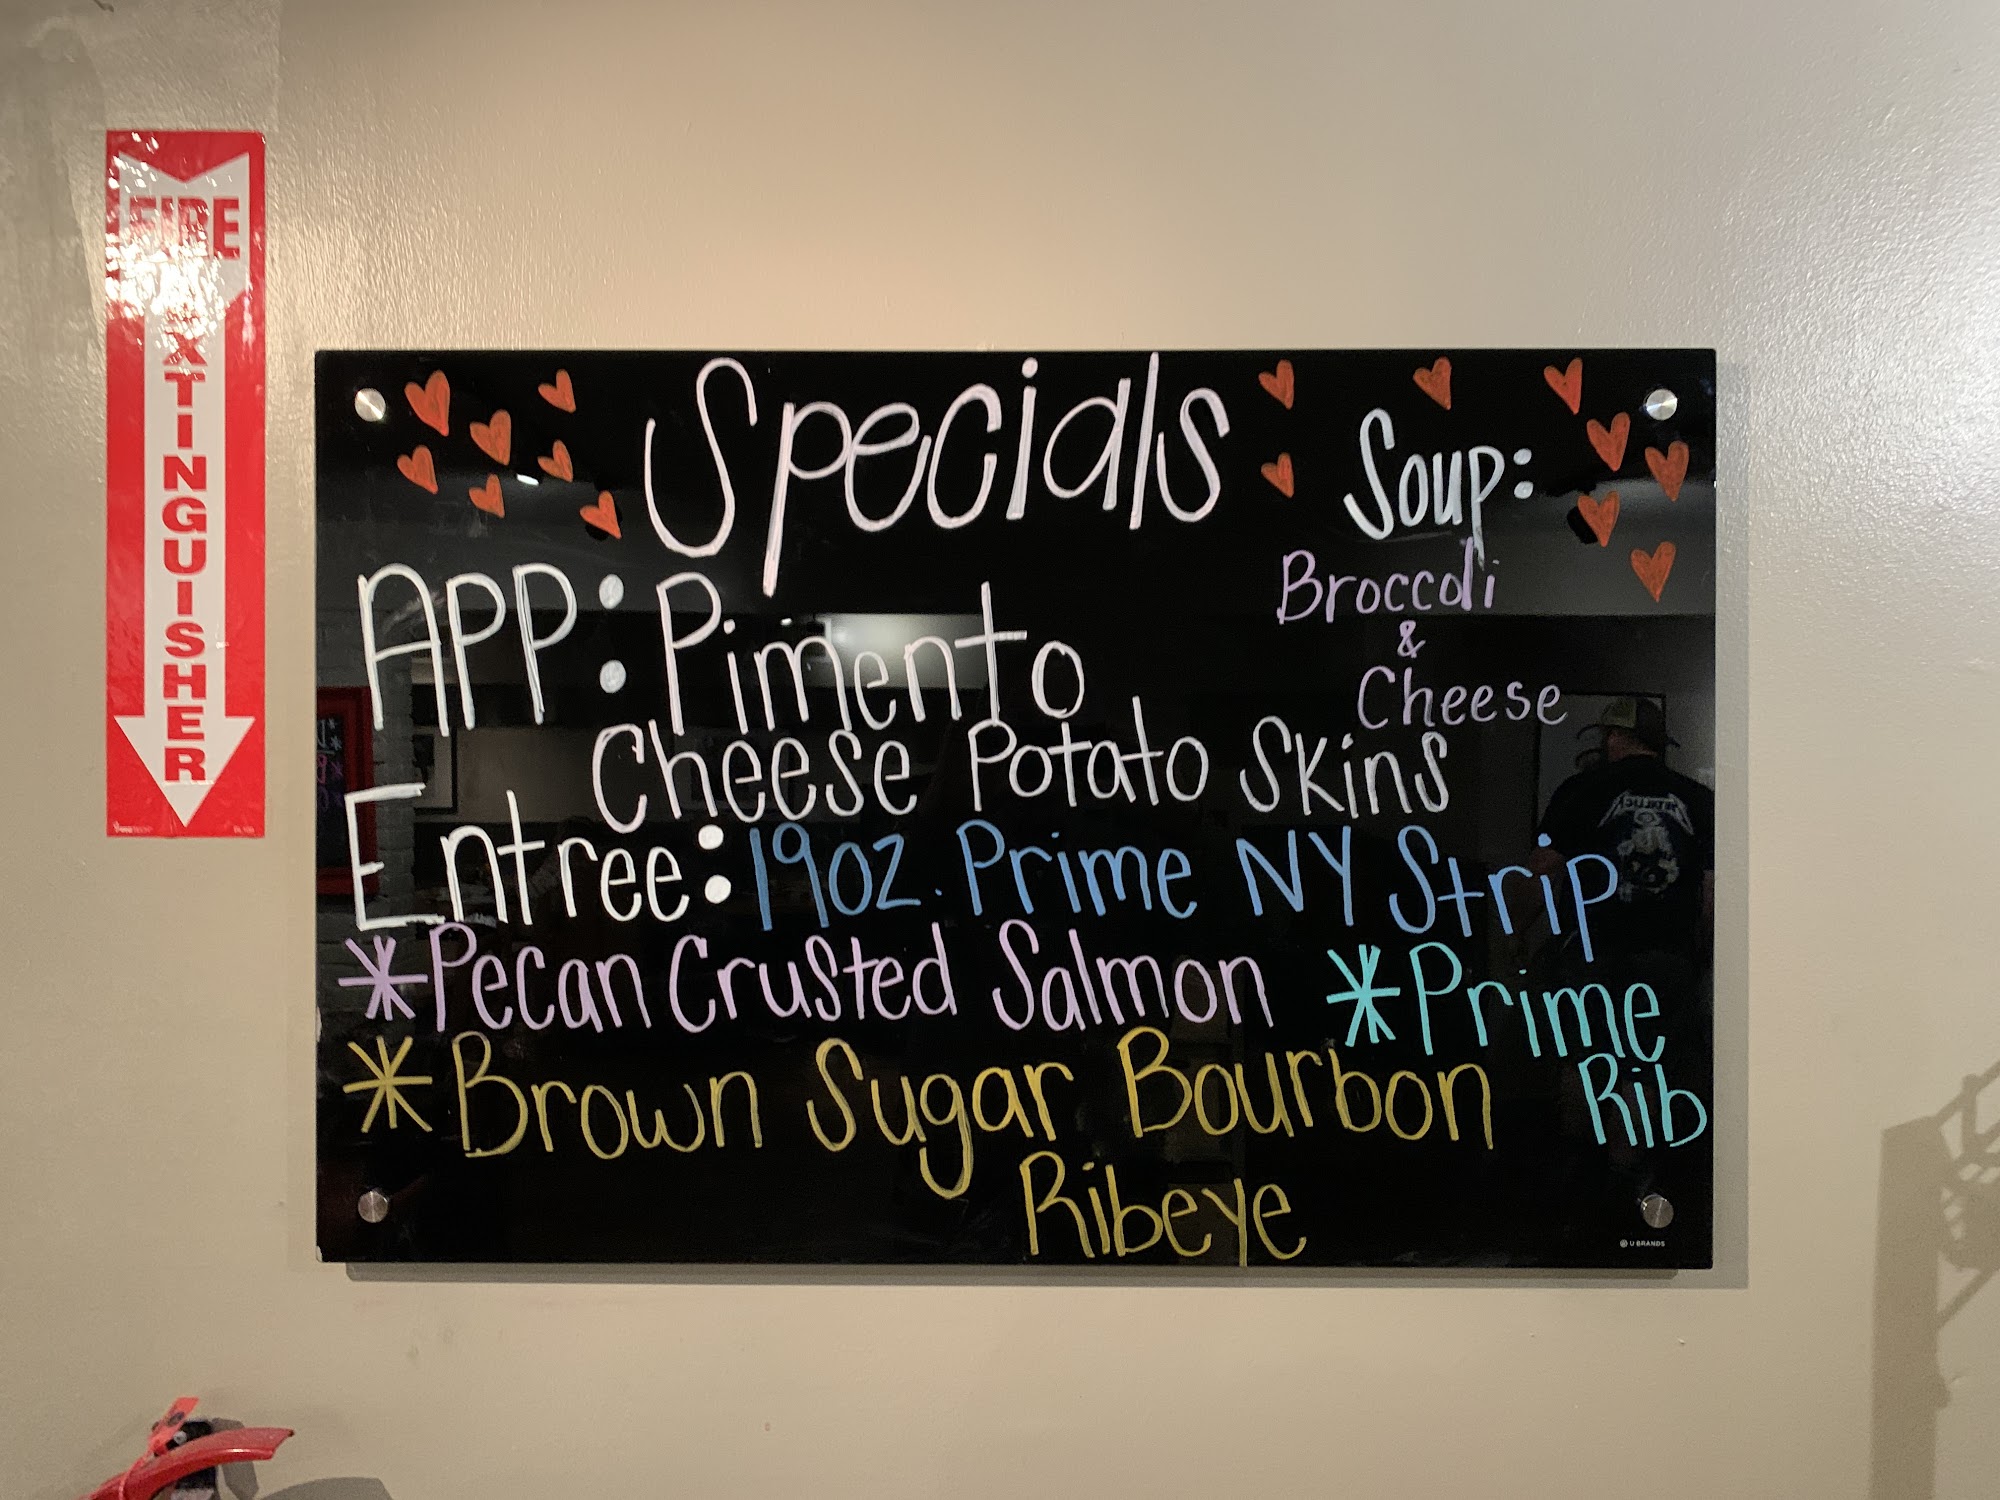 FIRE
EXTINGUISHER
Specials
Soup:
Broccoli
&
Cheese
APP: Pimento
Cheese Potato Skins
Entree: 19oz. Prime NY Strip
*Pecan Crusted Salmon
*Prime
Rib
*Brown Sugar Bourbon
Ribeye
U BRANDS